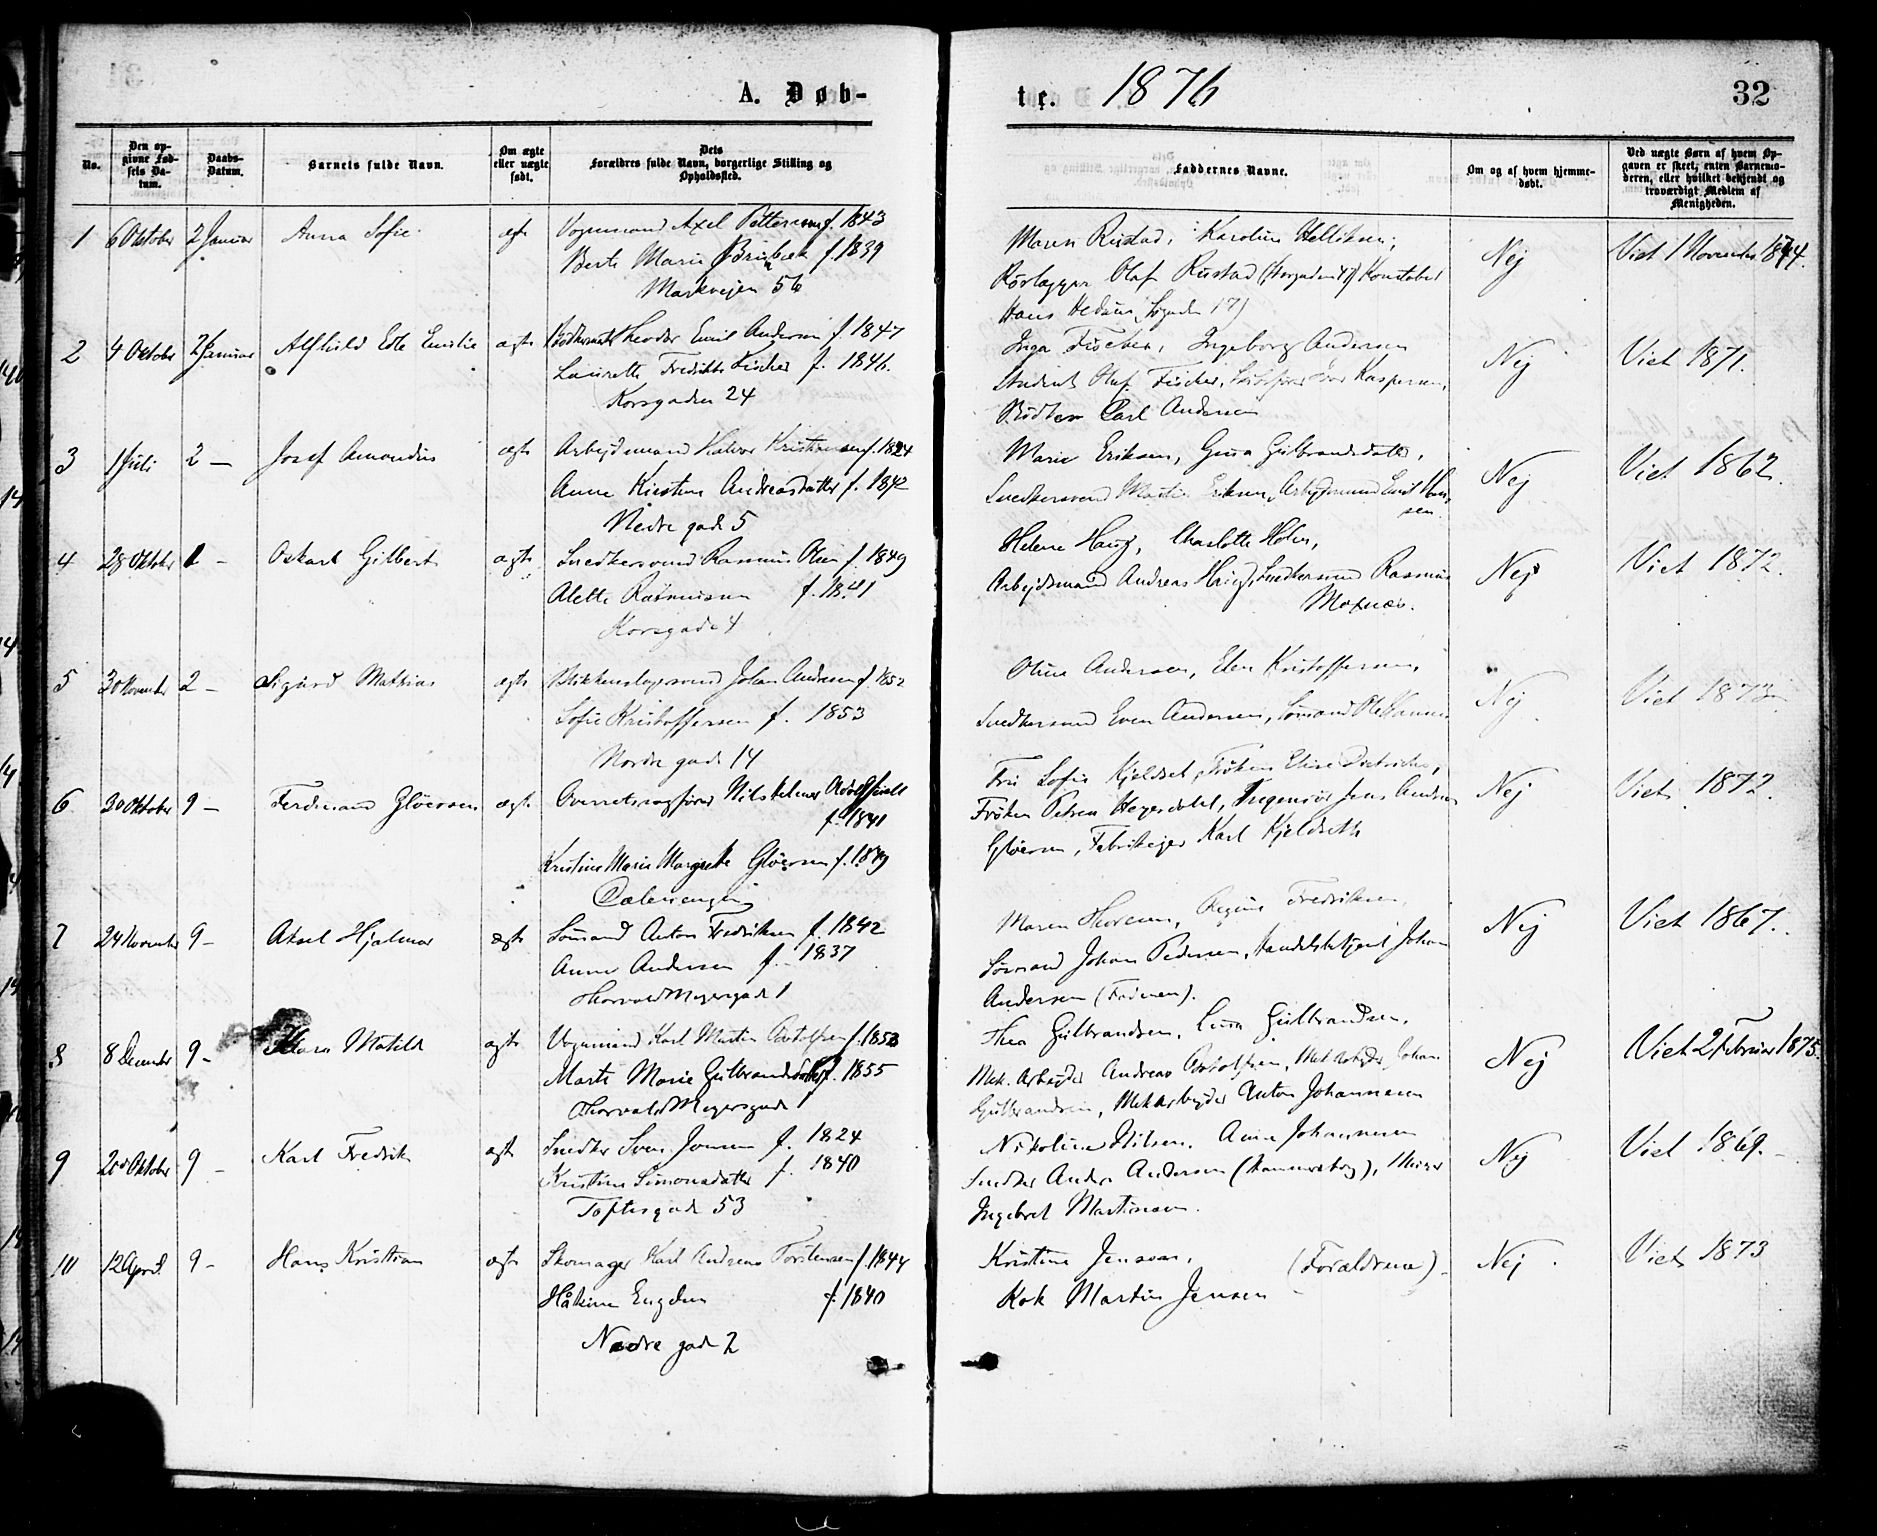 A. Døb-
te. 1876
32
No.
Den op-
givne Fød-
sels Da-
tum.
Daabs-
Datum.
Barnets fulde Navn.
Om ægte
eller uægte
født.
Dets
Forældres fulde Navn, borgerlige Stilling og
Opholdssted.
Faddernes Navne.
Om og af hvem hjemme-
døbt.
Ved uægte Børn af hvem Op-
gaven er skeet, enten Barnemo-
deren, eller hvilket bekjendt og
troværdigt Medlem af
Menigheden.
1 6 Oktober 2 Januar Anna Sofie Vognmand Axel Pettersen f. 1843
Berte Marie f. 1839
Markvejen 56
Maren Rustad, Karoline Helliksen,
Rørlægger Olaf Rustad Konstabel
Hans
Nej
Viet 1 November 1874.
2 4 Oktober 2 Januar Alfhild Edle Emilie ægte Theodor Emil Andersen f. 1847
Laurette Fredrikke Fischer f. 1846.
Korsgaden 24
Inga Fischer, Ingeborg Andersen
Student Olaf Fischer, Kaspersen,
Bødker Carl Andersen
Nej
Viet 1871.
3 1 Juli 2 — Josef Amandus ægte Arbejdsmand Halvor Kristiansen f. 1824
Anne Kirstine Andreasdatter f. 1842
Nedre gade 5
Marie Eriksen, Gina Gulbrandsdatter,
Snedkersvend Martin Eriksen, Arbejdsmand Emil Han-
sen.
Nej
Viet 1862.
4 28 Oktober — Oskar Gilbert ægte Snedkersvend Rasmus Olsen f. 1849
Alette Rasmussen f. 1841
Korsgade 4
Helene Haug, Charlotte Holm,
Arbejdsmand Andreas Haug, Snedkersvend Rasmus
Moxnæs.
Nej
Viet 1872.
5 30 November 2 — Sigurd Mathias ægte Blikkenslagersvend Johan Andersen f. 1852
Sofie Kristoffersen f. 1853
Nordre gade 14
Oline Andersen, Elen Kristoffersen,
Snedkersvend Even Andersen, Sømand Ole Hansen
Nej
Viet 1873.
6 30 Oktober 9 — Ferdinand Gløersen ægte Overretssagfører
f. 1841
Kristine Marie Margrete Gløersen f. 1849
Dælenengen
Fru Sofie Kjeldset, Frøken Elise
Frøken Petrea Heyerdahl, Ingeniør Jens Andreas
Gløersen, Fabrikejer Karl Kjeldseth
Nej
Viet 1872.
7 24 November 9 — Aksel Hjalmar ægte Sømand Anton Fredriksen f. 1842
Anne Andersen f. 1837
Thorvald Meyersgade 1
Maren Thoresen, Regine Fredriksen,
Sømand Johan Pedersen, Handelsbetjent Johan
Andersen (Faderen).
Nej
Viet 1867.
8 8 December 9 — Klara Matilde ægte Vognmand Karl Martin f. 1853
Marte Marie Gulbrandsdatter f. 1855
Thorvald Meyersgade 1
Thea Gulbrandsen, Gulbrandsen,
Mek. Arbejder Andreas Mek Arbejder Johan
Gulbrandsen, Mek Arbejder Anton Johannesen
Nej
Viet 2 Februar 1875.
9 20 Oktober 9 — Karl Fredrik ægte Snedker Sven Jonsen f. 1824
Kristine Simonsdatter f. 1840
Toftesgade 53
Nikoline Nilsen, Anne Johannesen
Snedker Anders Andersen (Hammersborg), Murer
Ingebret Martinsen.
Nej
Viet 1869.
10 12 April 9 — Hans Kristian ægte Skomager Karl Andreas Torstensen f. 1844
Engden f. 1840
Nedre gade 2
Kristine Jensen, (Forældrene)
Kok Martin Jensen
Nej
Viet 1873